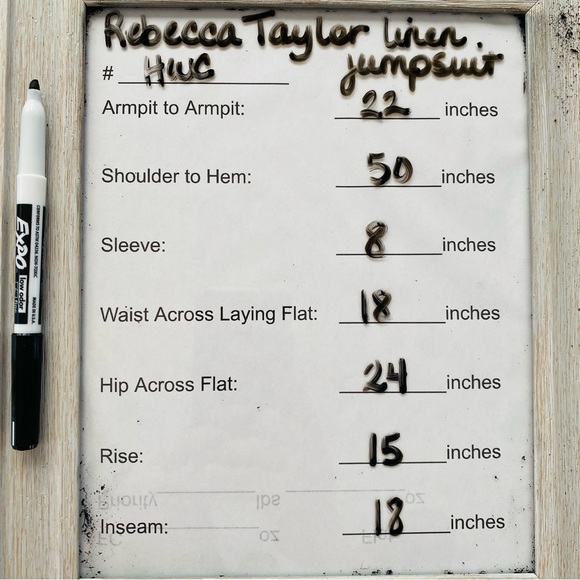 Rebecca Taylor linen.
# HWC jumpsuit
Armpit to Armpit: 22 inches
Shoulder to Hem: 50 inches
Sleeve: 8 inches
Waist Across Laying Flat: 18 inches
Hip Across Flat: 24 inches
Rise: 15 inches
Priority lbs oz
Inseam: 18 inches
EXPO
low odor
MADE IN U.S.A.